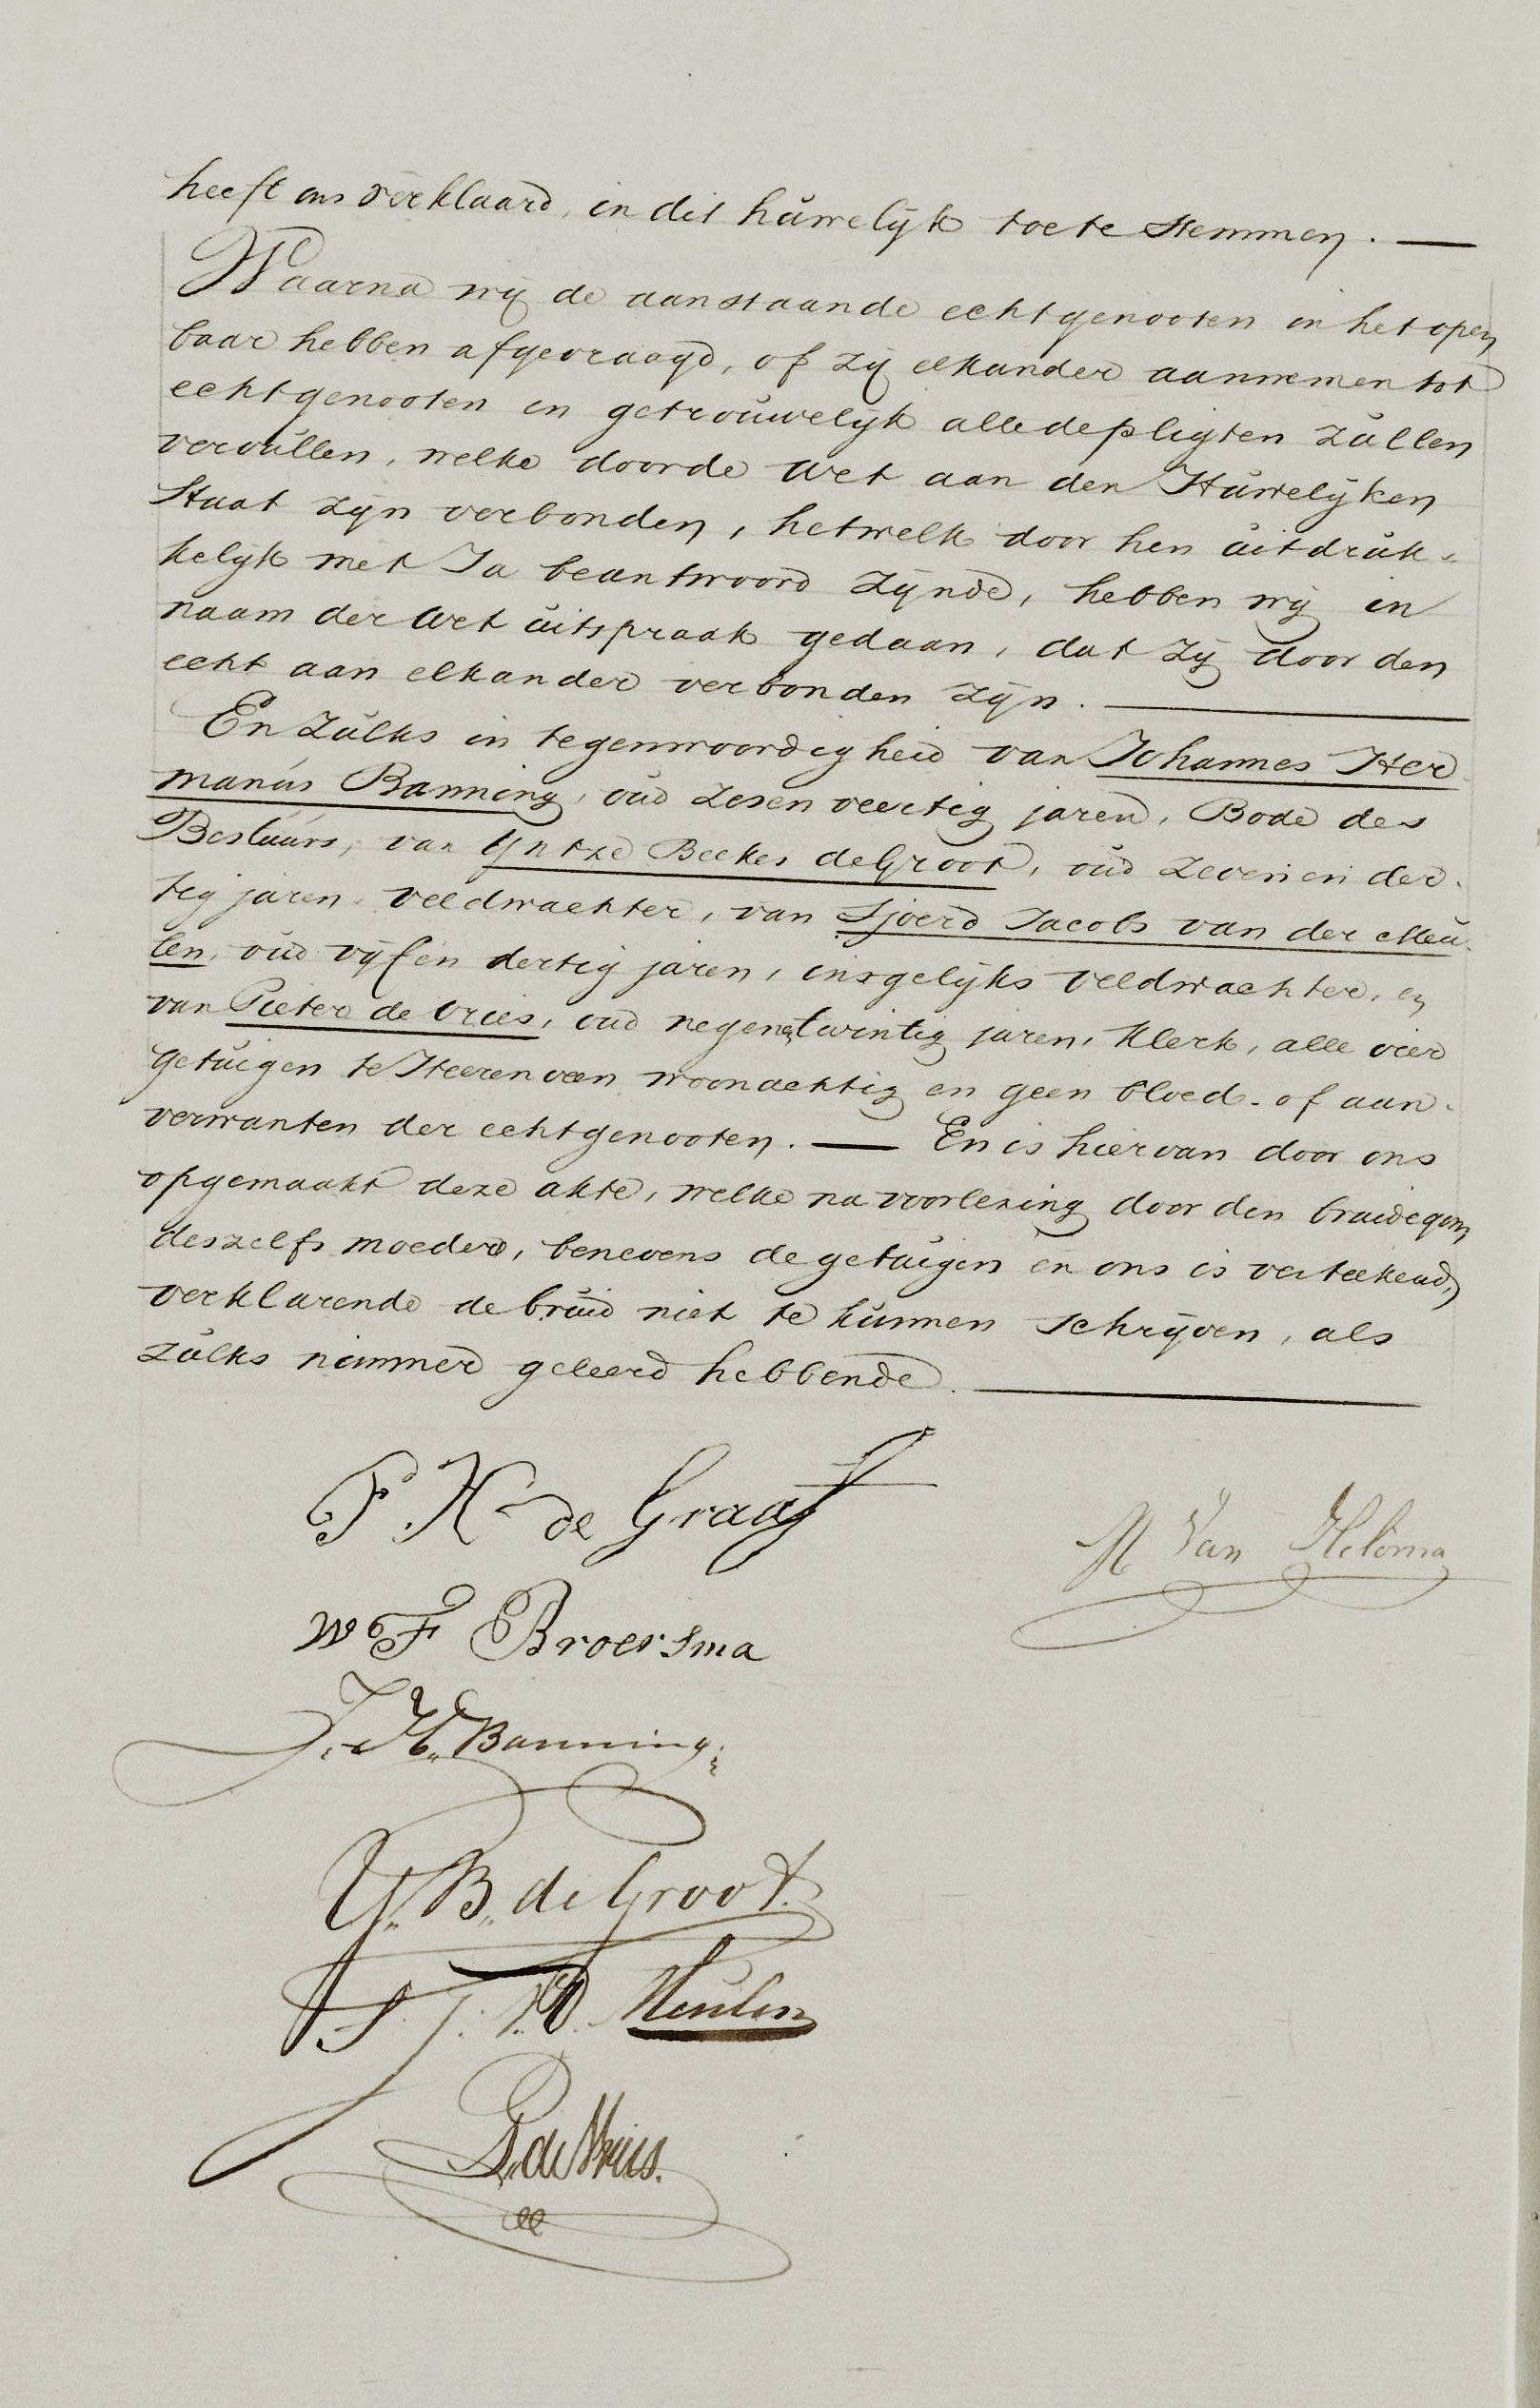 heeft ons verklaard, in dit huwelijk toe te stemmen. —
Waarna wij de aanstaande echtgenooten in het open
baar hebben afgevraagd, of zij elkander aannemen tot
echtgenooten en getrouwelijk alle de pligten zullen
vervullen, welke door de wet aan den Huwelijken
Staat zijn verbonden, hetwelk door hen uitdruk-
kelijk met Ja beantwoord zijnde, hebben wij in
naam der wet uitspraak gedaan, dat zij door den
echt aan elkander verbonden zijn. —
En zulks in tegenwoordigheid van Johannes Her
manus Banning, oud zesen veertig jaren, Bode des
Bestuurs, van Yntze Beekes de Groot, oud zeven en der-
tig jaren, veldwachter, van Sjoerd Jacobs van der Meu-
len, oud vijf en dertig jaren, insgelijks veldwachter, en
van Pieter de Vries, oud negen en twintig jaren, Klerk, alle vier
getuigen te Heerenveen woonachtig en geen bloed- of aan-
verwanten der echtgenooten. — En is hiervan door ons
opgemaakt deze akte, welke na voorlezing door den bruidegom,
deszelfs moeder, benevens de getuigen en ons is verteekend,
verklarende de bruid niet te kunnen schrijven, als
zulks nimmer geleerd hebbende. —
F. K. de Graaf
M Van Heloma
W F Broersma
J. H. Banning.
Y. B. de Groot.
S. J. V. D. Meulen
P. de Vries.